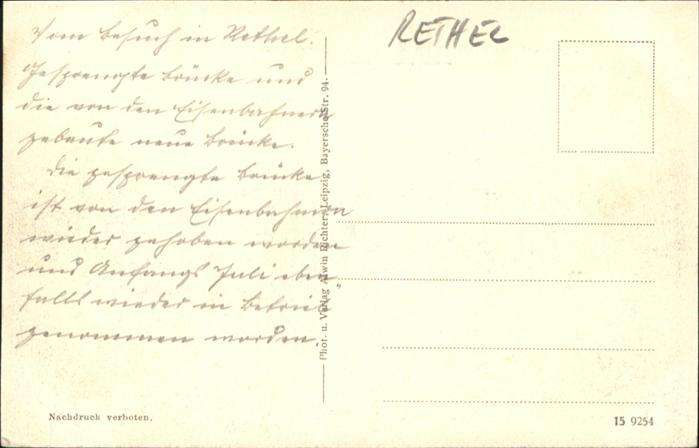 Vom Besuch in Rethel.
Gesprengte Brücke und
die von den Eisenbahnern
gebaute neue Brücke.
Die gesprengte Brücke
ist von den Eisenbahnern
wieder gehoben worden
und Anfangs Juli eben
falls wieder in Betrieb
genommen worden.
RETHEL
Phot. u. Verlag Alwin Richter, Leipzig, Bayerschestr. 94.
Nachdruck verboten.
15 9254